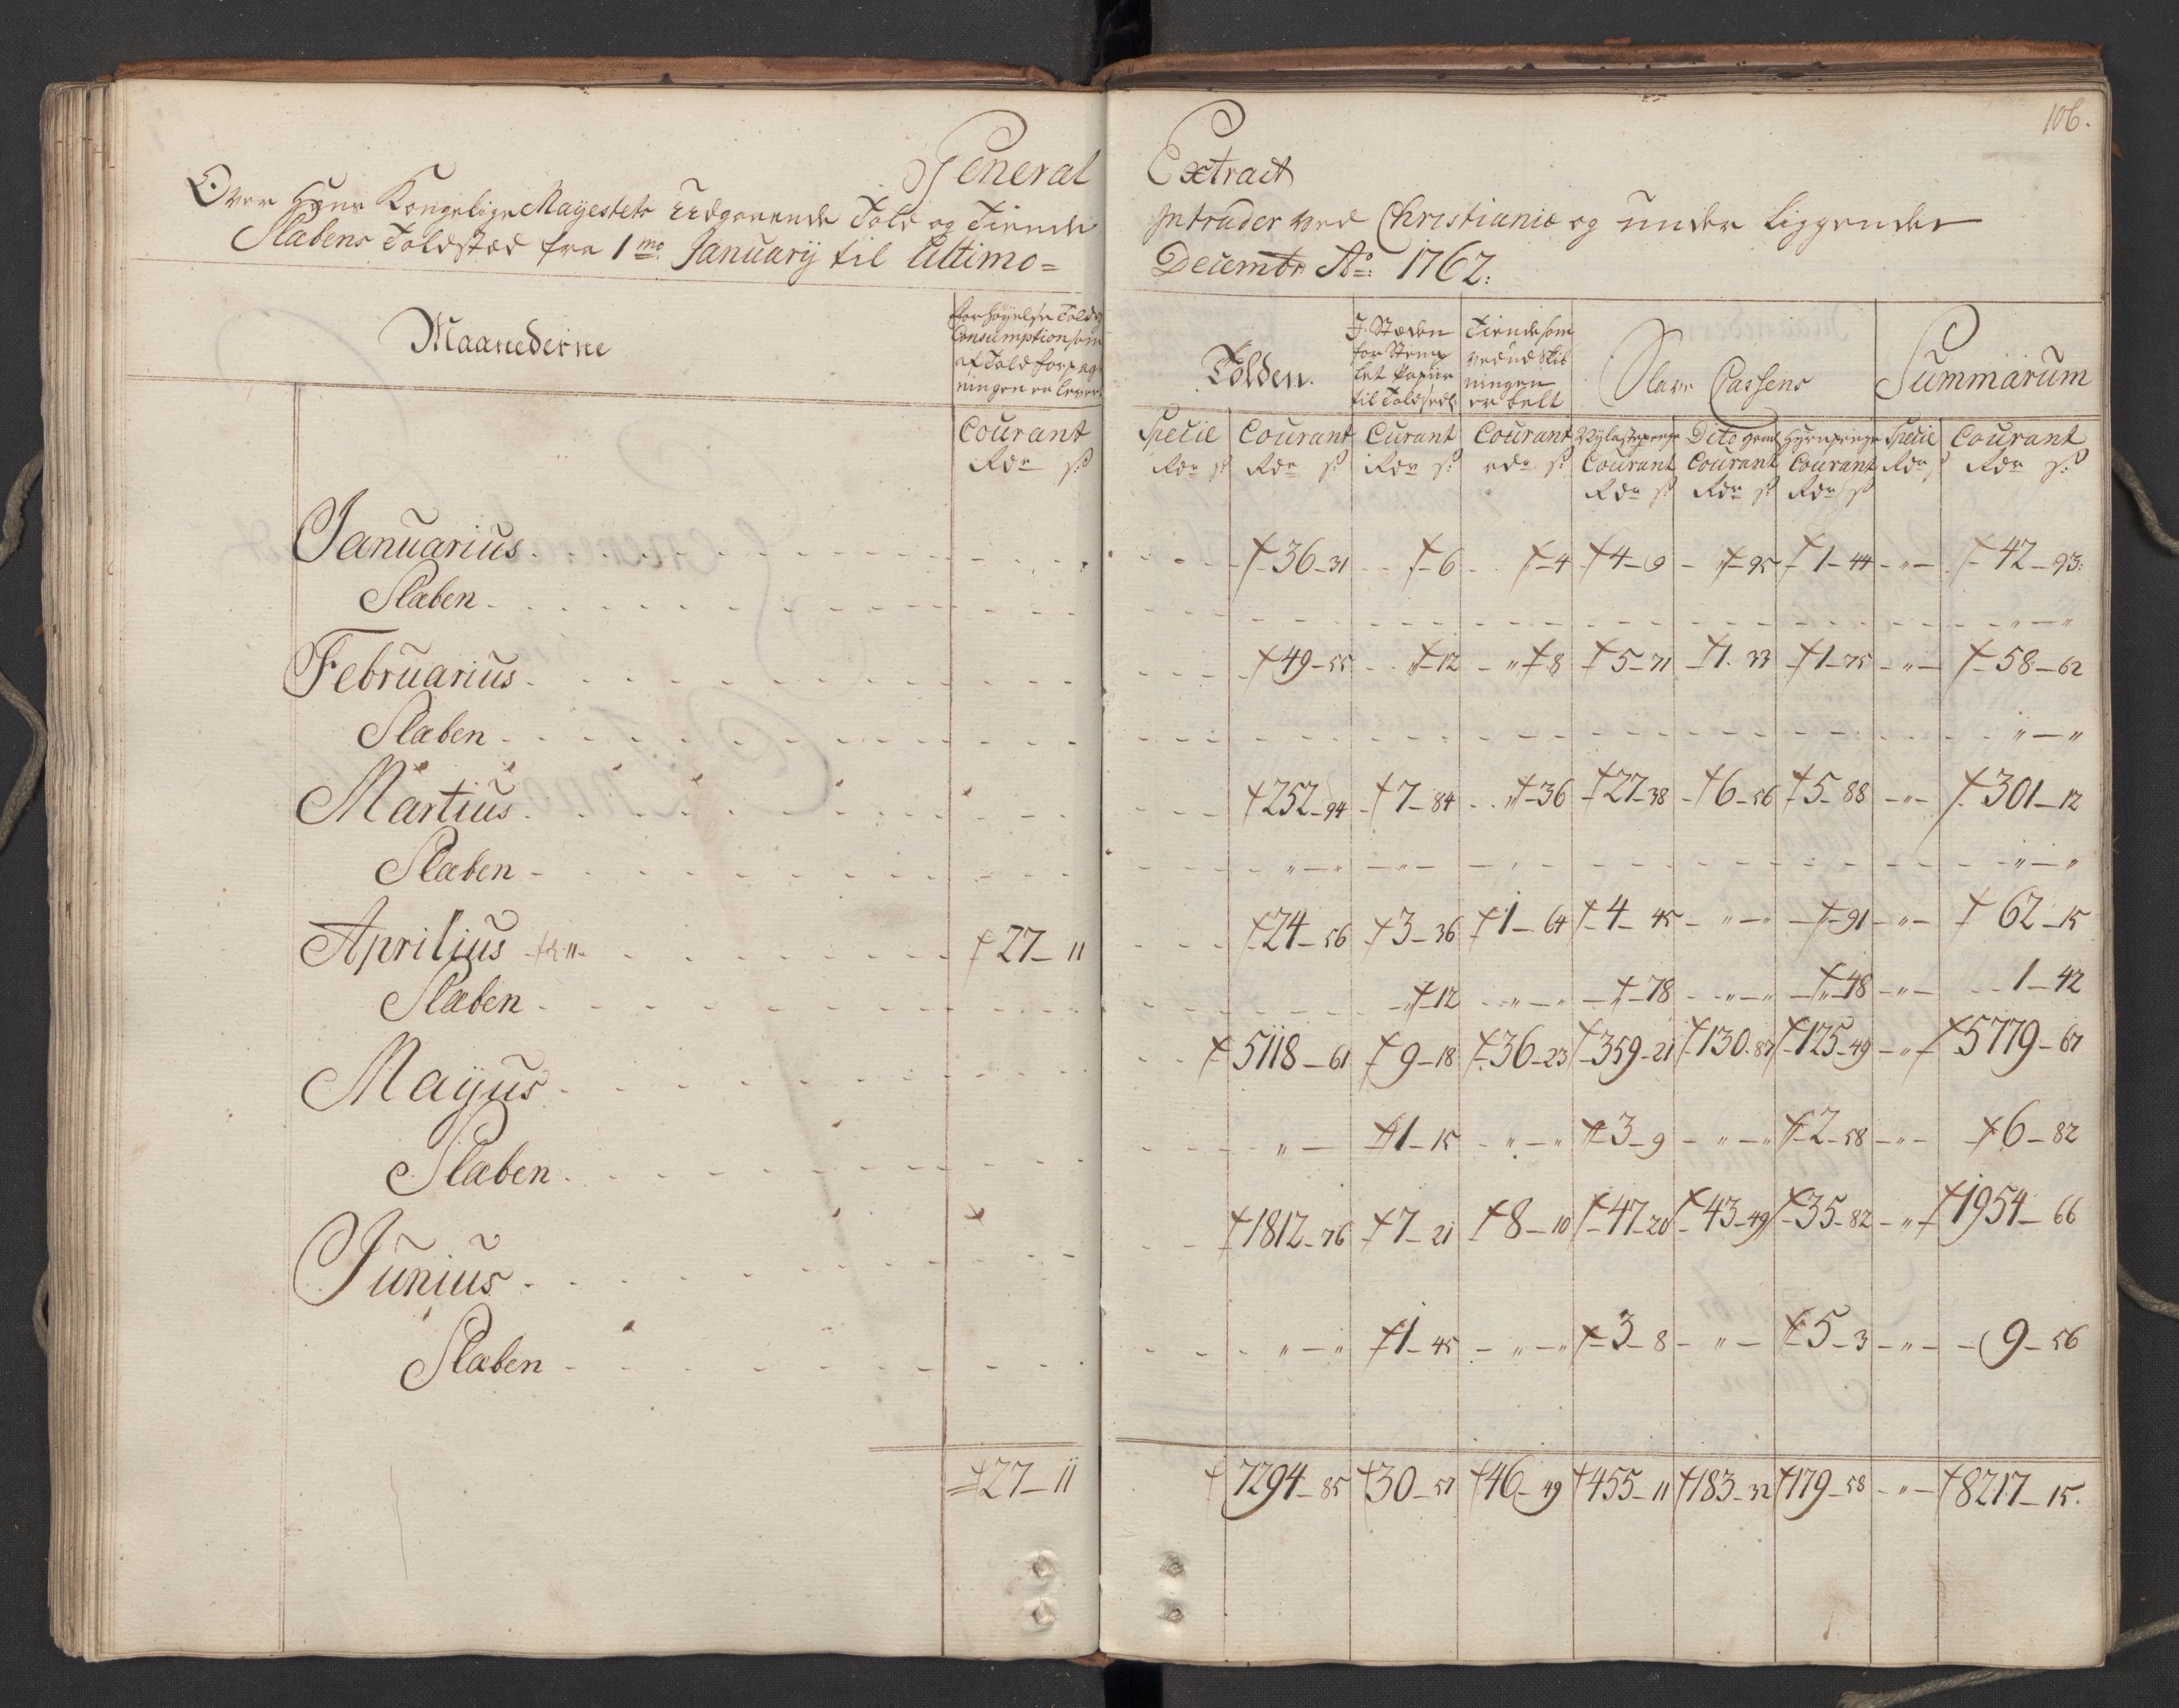 106.
General Extract
Over Hans Kongelige Mayestets Udgaaende Told og Tiende Intrader ved Christianiæ og under liggende
Slæbens Toldstæd fra 1mo January til Ultimo= Decembr Ao: 1762:
Maanederne
Forhøyelse Told og
Consumption som
af Told forpagt
ningen er levert
Tolden.
I Stæden
for Stemp
let Papiir
til Toldsedl:
Tiende som
ved udskib
ningen
er belt
Slave Cassens
Summarum
Courant
Rdr s:
Specie Courant Curant Courant Courant Dito Courant Courant Specie Courant
Rdr s: Rdr s: Rdr s: rdr s: Rdr s: Rdr s: Rdr s: Rdr s: Rdr s:
Januarius 36-31 6 4 4-9 95 1-44 42-93:
Slæben
Februarius 49-55 12 8 5-71 1.33 1-75 58-62
Slæben
Martius 252-94 7-84 36 27-38 6-56 5-88 301-12
Slæben
Aprilius 27-11 24-56 3-36 1-64 4-45 91 62-15
Slæben 12 78 48 1-42
Mayus 5118-61 9-18 36-23 359-21 130-87 125-49 5779-67
Slæben 1-15 3-9 2-58 6-82
Junius 1812-76 7-21 8-10 47-20 43-49 35-82 1954-66
Slæben 1-45 3-8 5-3 9-56
27-11 7294-85 30-57 46-49 455-11 183-32 179-58 8217-15.